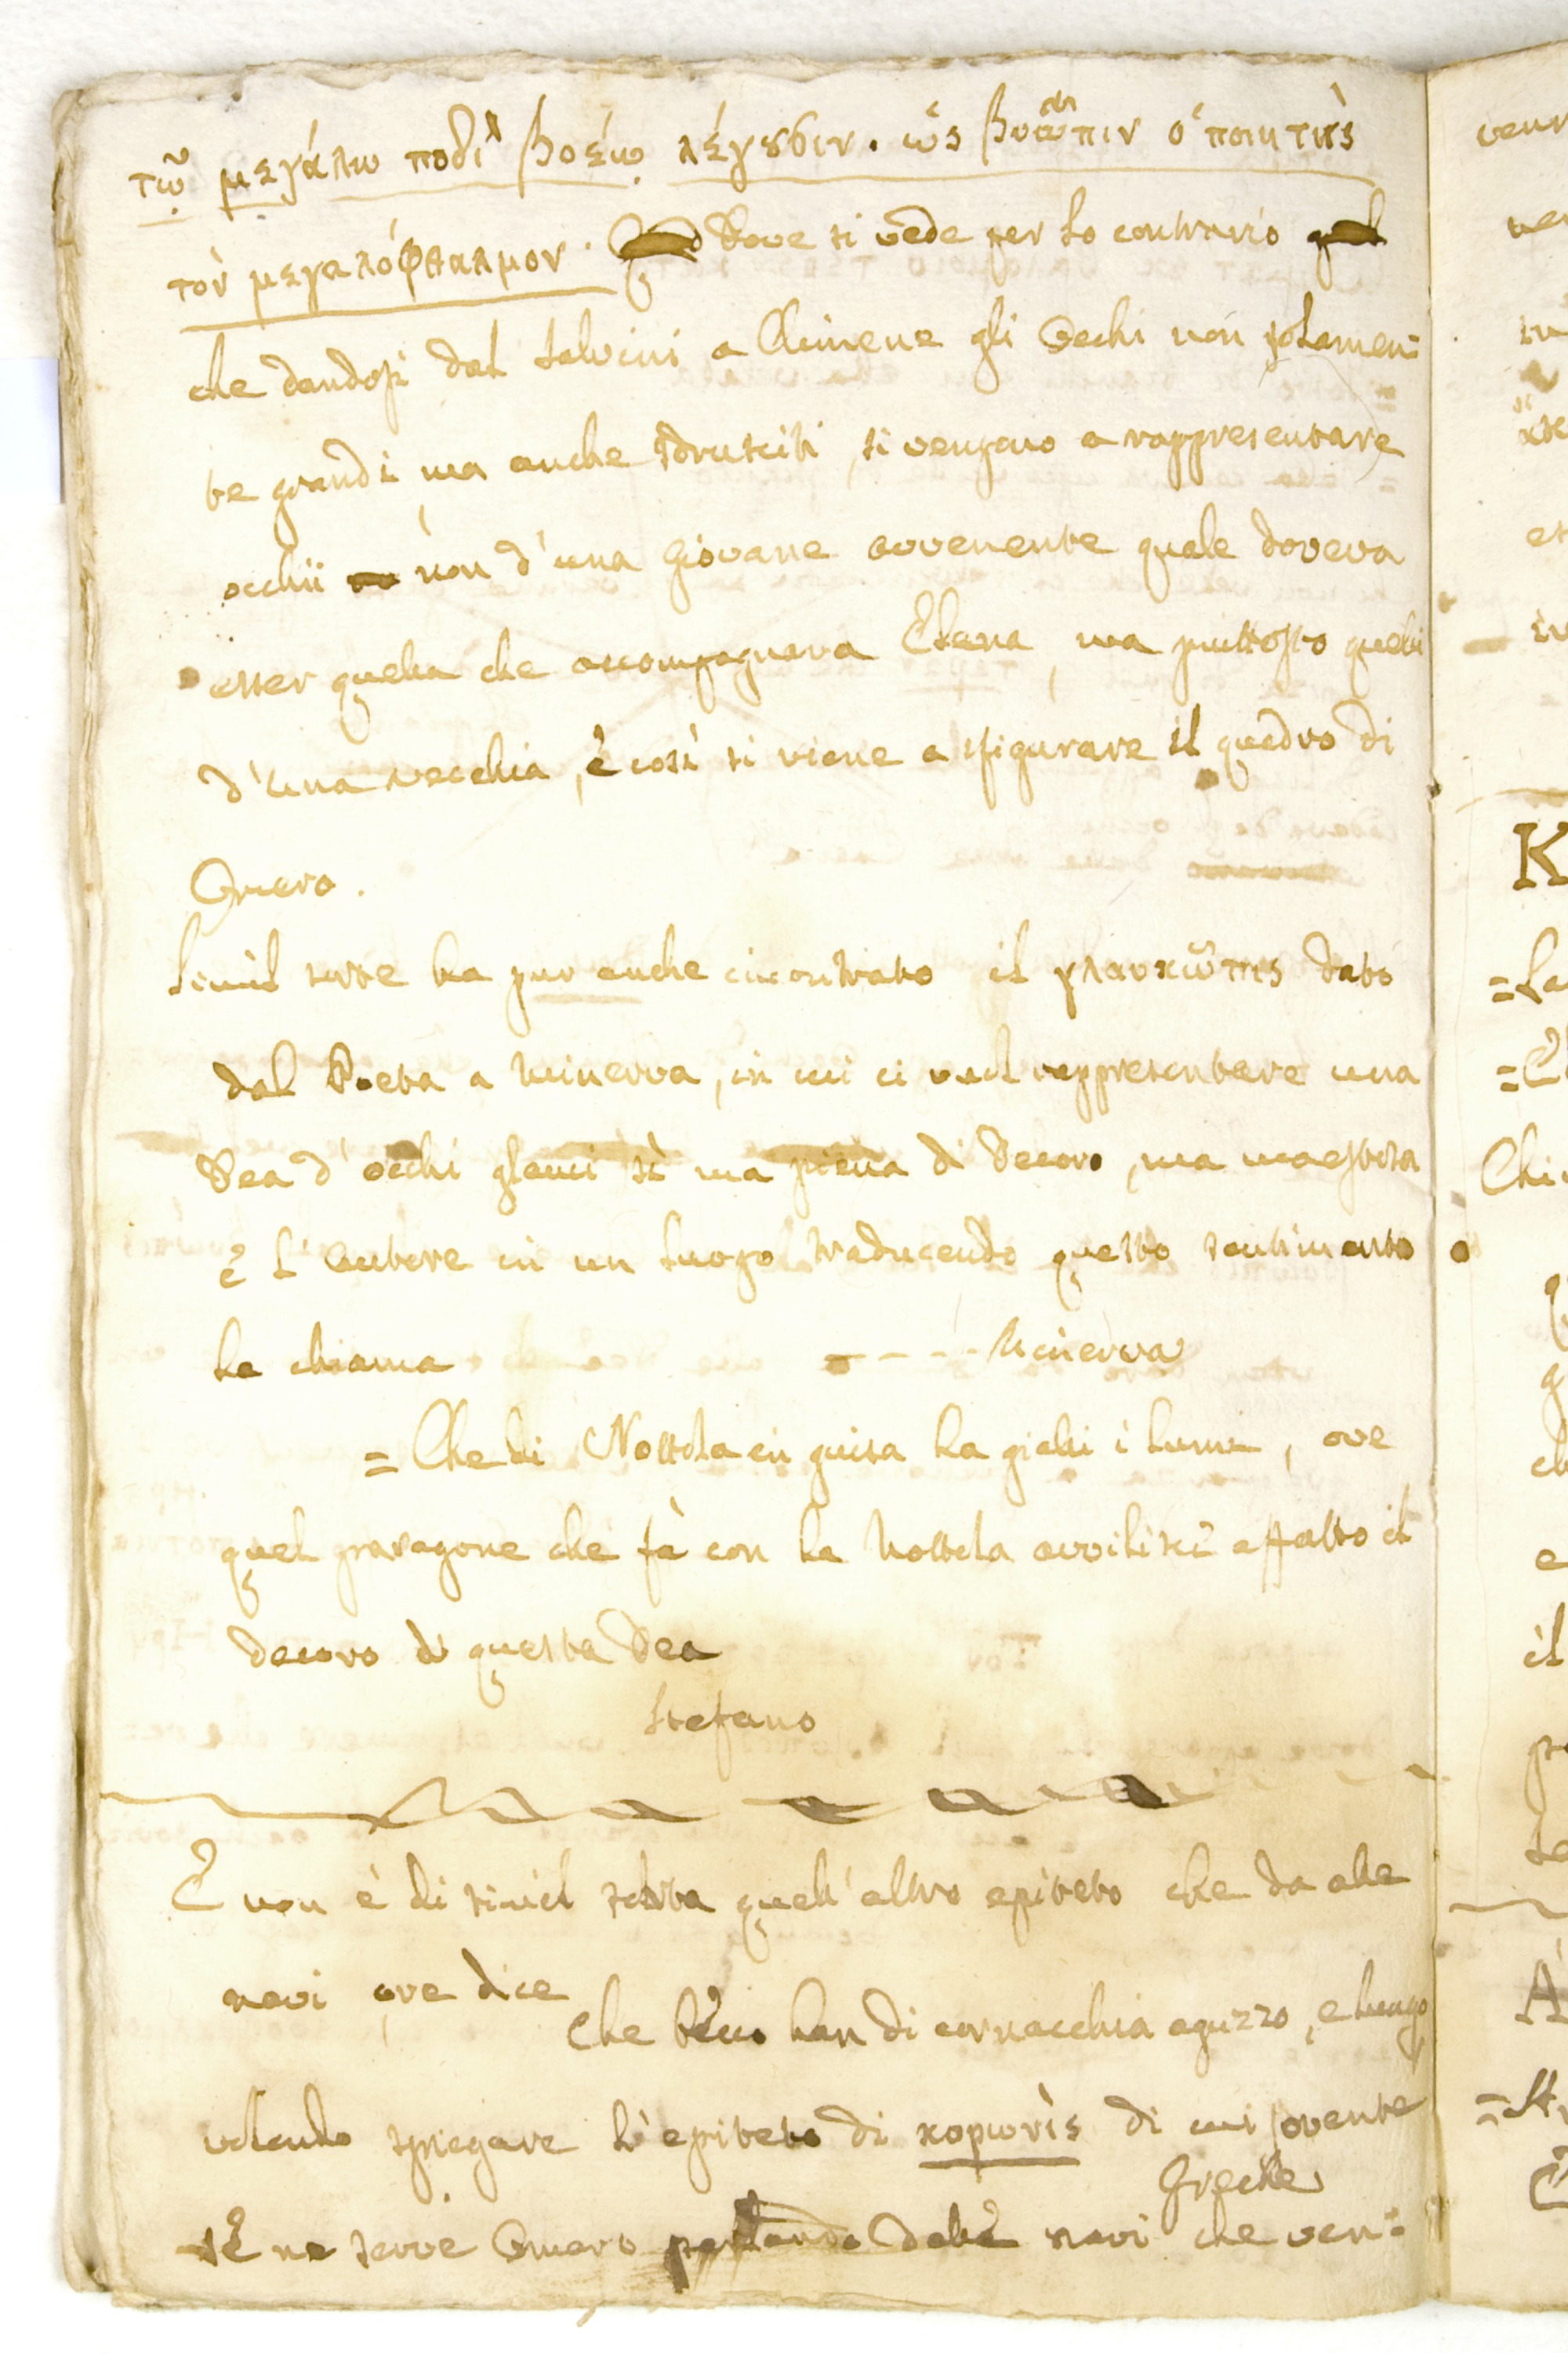 τῷ μεγάλω ποδὶ βοέῳ λέγουσιν. ὡς βοῶπιν ὁ ποιητὴς
τὸν μεγαλόφθαλμον. Dove si vede per lo contrario
che dandosi dal Salvini a Climene gli Occhi non solamen:
te grandi, ma anche sdrusciti, si vengano a rappresentare
occhii non d'una Giovane avvenente quale doveva
esser quella che accompagnava Elena, ma piuttosto quelli
d'una vecchia, è così si viene a sfigurare il quadro di
Omero.
Simil sorte ha pur anche incontrato il γλαυκῶπις dato
dal Poeta a Minerva, in cui ci vuol rappresentare una
Dea d'occhi glauci sì ma piena di Decoro, ma maestosa
è l'Autore in un luogo traducendo questo sentimento
la chiama - - - - Minerva
= Che di Nottola in guisa ha gialli i lumi, ove
quel paragone che fà con la Nottola avvilisce affatto il
decoro di questa Dea
Stefano
E non è di simil sorta quell'altro epiteto che da alle
navi ove dice
Che becco han di cornacchia aguzzo, e lungo
volendo spiegare l'epiteto di κορωνὶς di cui sovente
Greche
sè ne serve Omero parlando delle navi che ven: